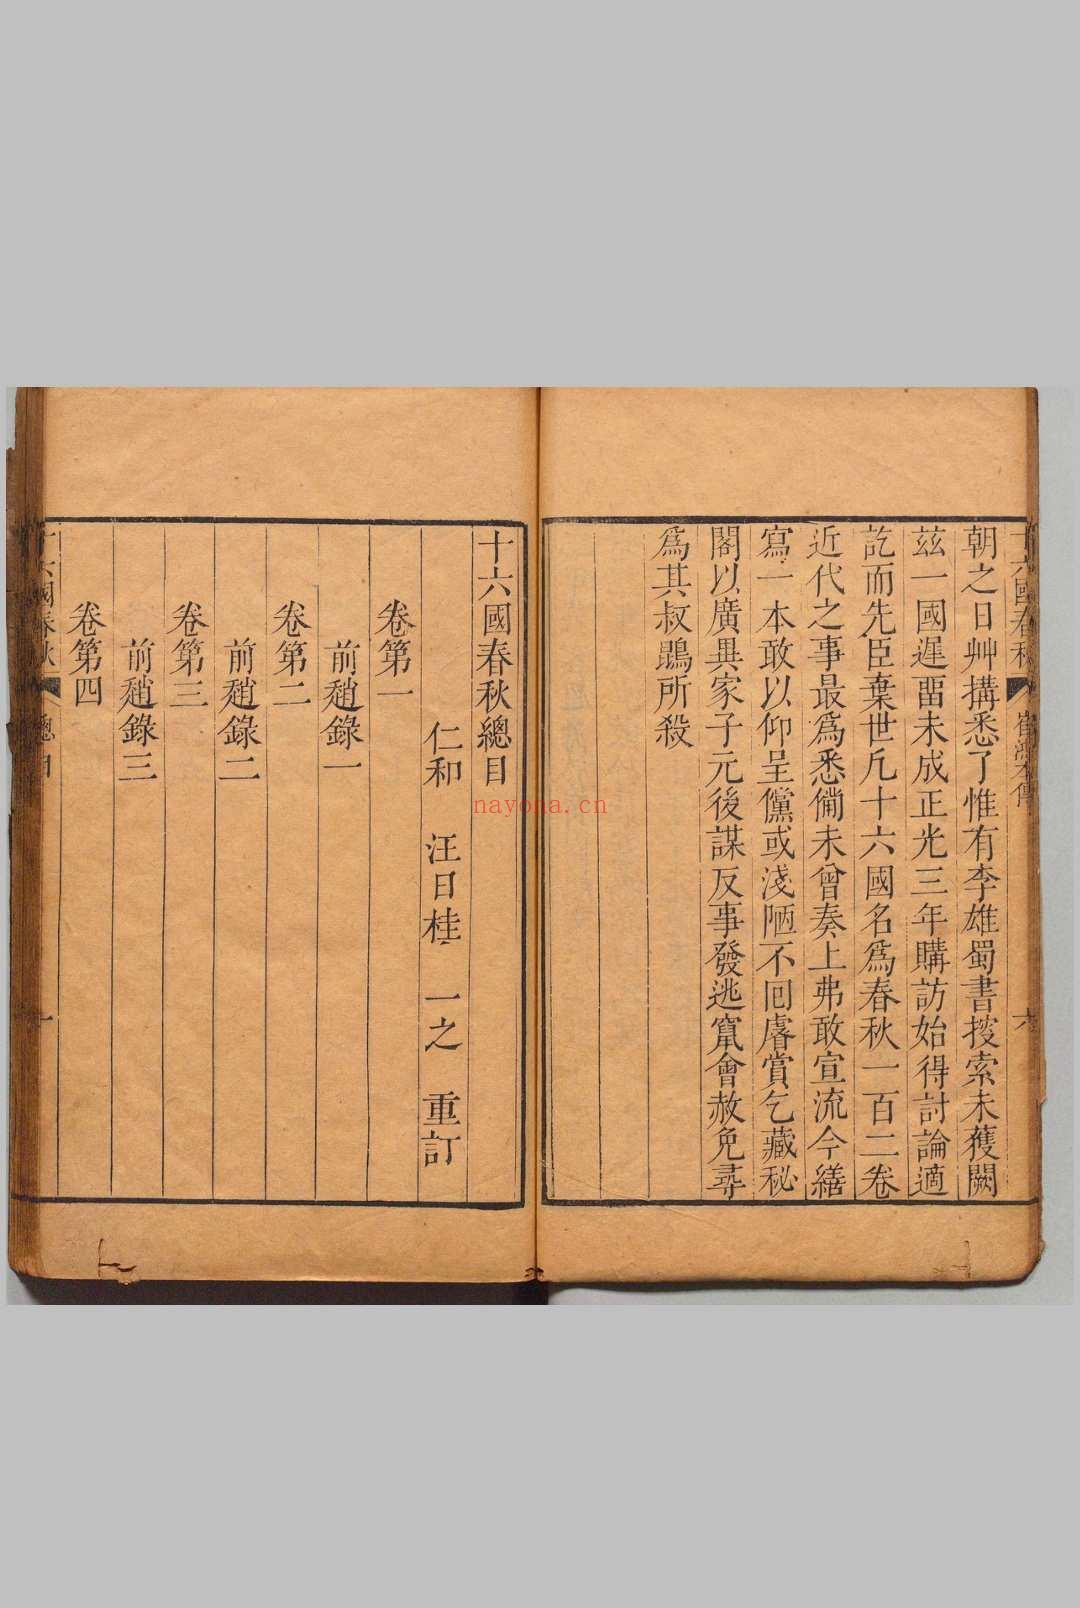 十六國春秋 崔鴻本傳 六
朝之日艸搆悉了惟有李雄蜀書搜索未獲闕
茲一國遲畱未成正光三年購訪始得討論適
訖而先臣棄世凡十六國名爲春秋一百二卷
近代之事最爲悉備未曾奏上弗敢宣流今繕
寫一本敢以仰呈儻或淺陋不回睿賞乞藏秘
閣以廣異家子元後謀反事發逃竄會赦免尋
爲其叔鵾所殺
十六國春秋總目
仁和 汪日桂 一之 重訂
卷第一
前趙錄一
卷第二
前趙錄二
卷第三
前趙錄三
卷第四
十六國春秋 總目 一
nayona.cn